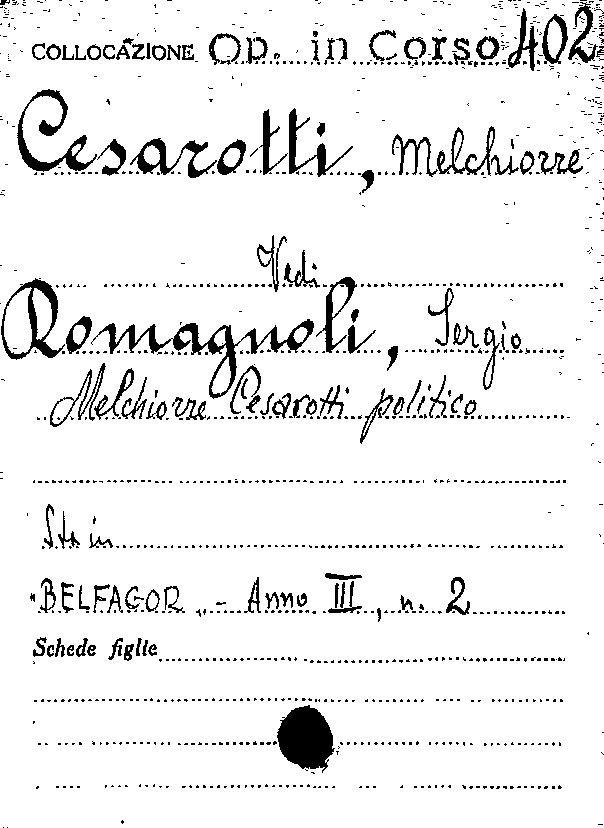 COLLOCAZIONE Op. in Corso 402
Cesarotti, Melchiorre
Vedi
Romagnoli, Sergio
Melchiorre Cesarotti politico
Sta in
"BELFAGOR„ - Anno III, n. 2
Schede figlie